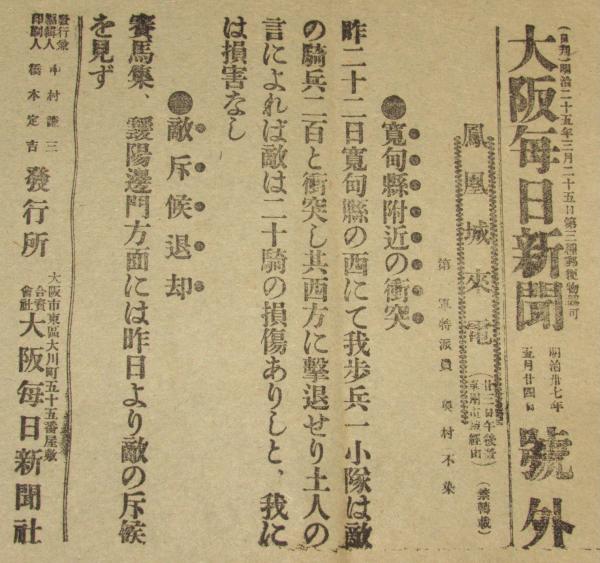 (日刊)明治二十五年三月二十五日第三種郵便物認可
大阪毎日新聞
明治卅七年
五月廿四日
號外
鳳凰城來電
(廿三日午後發
(禁轉載)
第一軍特派員 奥村不染
●寛甸縣附近の衝突
昨二十二日寛甸縣の西にて我歩兵一小隊は敵
の騎兵二百と衝突し其西方に撃退せり土人の
言によれば敵は二十騎の損傷ありしと、我に
は損害なし
●敵斥候退却
賽馬集、靉陽邊門方面には昨日より敵の斥候
を見ず
發行兼
編輯人 中村謙三
印刷人 橋本定吉
發行所
大阪市東區大川町五十五番屋敷
合資
會社
大阪毎日新聞社